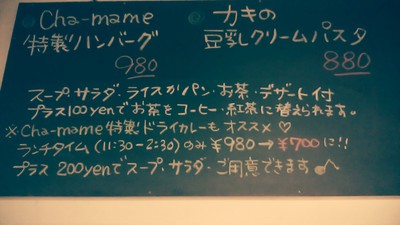 Cha-mame
特製ハンバーグ
980
カキの
豆乳クリームパスタ
880
スープ・サラダ・ライスかパン・お茶・デザート付
プラス100yenでお茶をコーヒー・紅茶に替えられます。
※Cha-mame特製ドライカレーもオススメ♡
ランチタイム(11:30-2:30)のみ ¥980→¥700に!!
プラス 200yenでスープ、サラダ、ご用意できます。